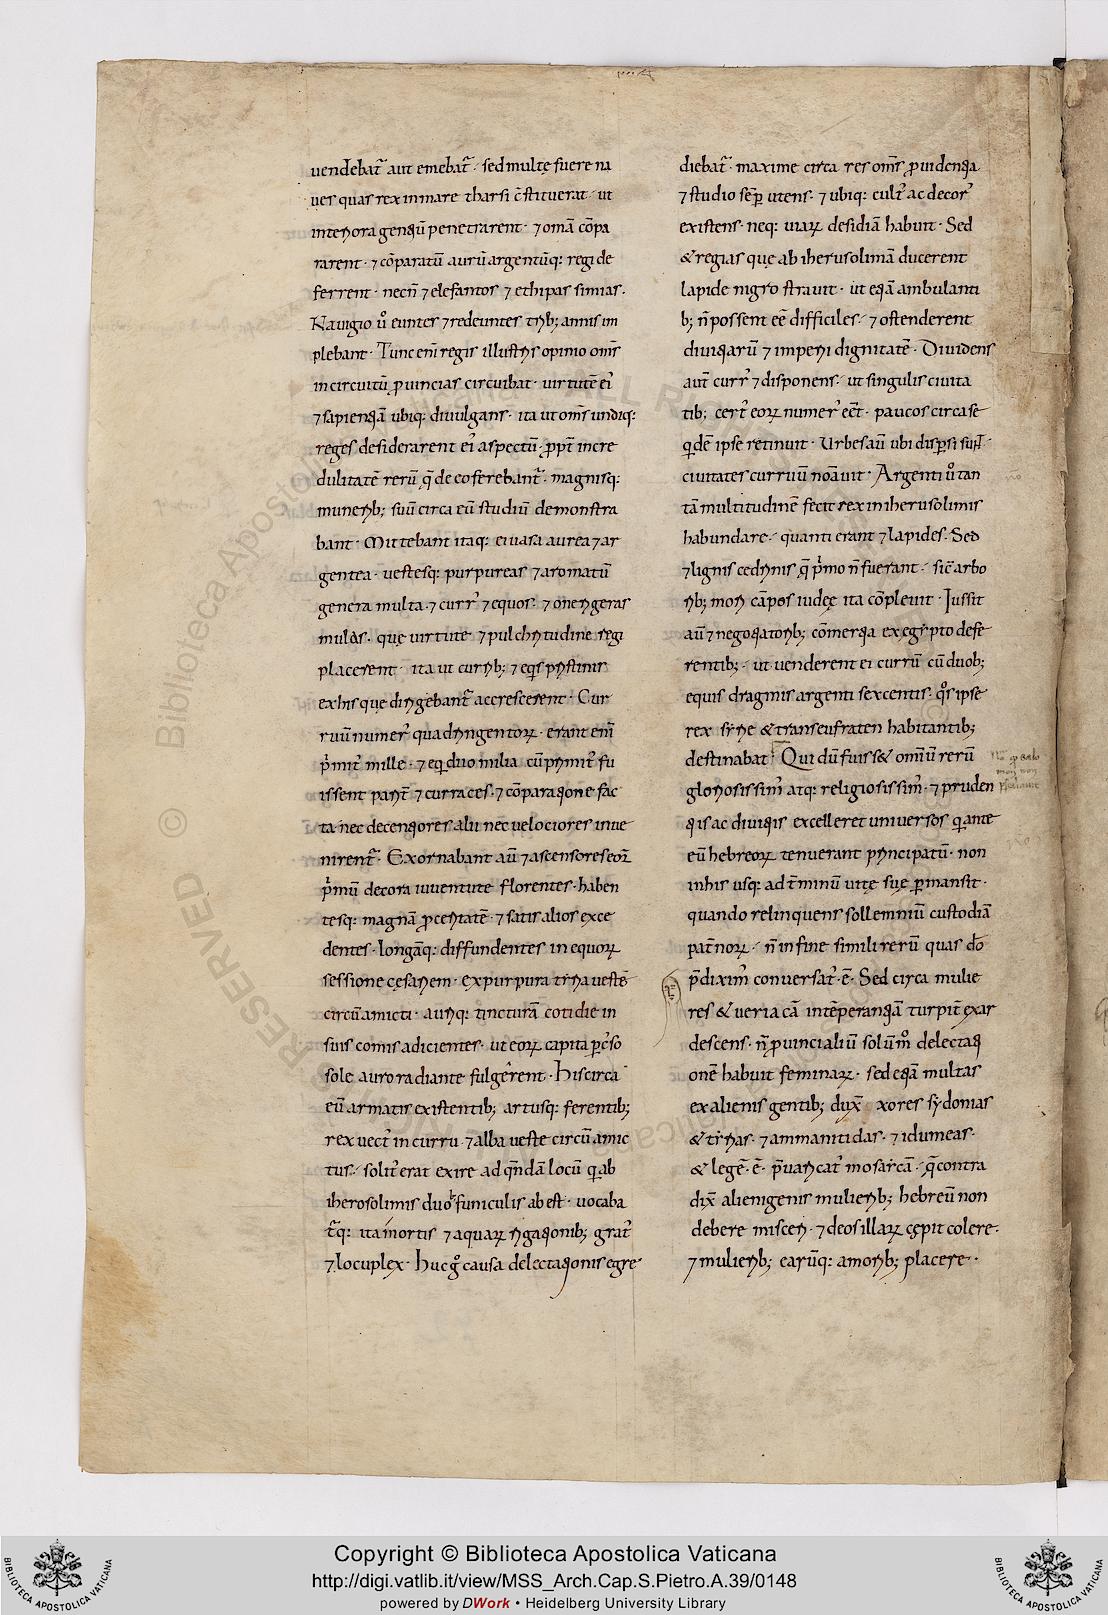 uendebat̃ aut emebat̃· sed multę fuere na
ues quas rex in mare tharsi c̄stituerat· ut
interiora gentiū penetrarent· ⁊ omā cōpa
rarent· ⁊ cōparatū aurū argentūq: regi de
ferrent· necñ ⁊ elefantos ⁊ ethipas simias·
Nauigio ũ eunter ⁊ redeuntes trib; annis im
plebant· Tunc eni᷑ regis illustris opinio oms̄
in circuitū ꝓuincias circuibat· uirtutē ei᷑
⁊ sapientiā ubiq: diuulgans· ita ut oms̄ undiq:
reges desiderarent ei᷑ aspectū· ꝓpt̃ incre
dulitatē rerū q̄ de eo ferebant̃· magnisq:
munerib; suū circa eū studiū demonstra
bant· Mittebant itaq: ei uasa aurea ⁊ ar
gentea· uestesq: purpureas ⁊ aromatū
genera multa· ⁊ curr᷑ ⁊ equos· ⁊ onerigeras
mulas· quę uirtute ⁊ pulchritudine regi
placerent· ita ut currib; ⁊ eqis pristinis
ex his que dirigebant̃ accrescerent· Cur
ruū numer᷑ quadringentoꝝ· erant eni᷑
p̓mit᷑ mille· ⁊ eq̓ duo milia cū primit᷑ fu
issent parit̃ ⁊ curraces· ⁊ cōparatione fac
ta nec decentiores alii nec uelociores inue
nirent̃· Exornabant aū ⁊ ascensores eoꝝ
p̓mū decora iuuentute florentes· haben
tesq: magnā ꝓceritatē· ⁊ satis alios exce
dentes· longāq: diffundentes in equoꝝ
sessione cęsariem· ex purpura tiria uestē
circū amicti· auriq: tincturā cotidie in
suis comis adicientes· ut eoꝝ capita ꝑc̓so
sole auro radiante fulgerent· His circa
eū armatis existentib; artusq: ferentib;
rex uect᷑ in curru· ⁊ alba ueste circū amic
tus· solit᷑ erat exire ad qn̄dā locū q̓ ab
iherosolimis duob᷑ funiculis abest· uocaba
t̃q: ita mortis ⁊ aquaꝝ rigationib; grat᷑
⁊ locuplex· Huc g̊ causa delectationis egre
diebat̃· maxime circa res oms̄ ꝓuidentia
⁊ studio sēꝑ utens· ⁊ ubiq: cult᷑ ac decor᷑
existens· neq: uiaꝝ desidiā habuit· Sed
& regias quę ab iherusolimā ducerent
lapide nigro strauit· ut etiā ambulanti
b; ñ possent eē difficiles· ⁊ ostenderent
diuitiarū ⁊ imperii dignitatē· Diuidens
aūt curr᷑ ⁊ disponens· ut singulis ciuita
tib; cert᷑ eoꝝ numer᷑ eēt· paucos circa se
q̓dē ipse retinuit· Urbes aū ubi disꝑsi sunt·
ciuitates curruū noāuit· Argenti ũ tan
tā multitudinē fecit rex in iherusolimis
habundare· quanti erant ⁊ lapides· Sed
⁊ lignis cedrinis q̄ p̓mo ñ fuerant· sic̄ arbo
rib; mori cāpos iudeę ita cōpleuit· Iussit
aū ⁊ negotiatorib; cōmertia ex egipto defe
rentib;· ut uenderent ei currū cū duob;
equis dragmis argenti sexcentis· q̊s ipse
rex sirię & transeufraten habitantib;
destinabat· Qui dū fuiss& omniū rerū
gloriosissim᷑ atq: religiosissim᷑· ⁊ pruden
tis ac diuitis excelleret uniuersos q̓ ante
eū hebreoꝝ tenuerant principatū· non
in his usq: ad t̃minū uitę suę ꝑmansit·
quando relinquens sollemniū custodiā
pat̃noꝝ· ñ in fine simili rerū quas do᷑
p̄dixim᷑ conuersat᷑· ē· Sed circa mulie
res & ueria cā intēperantiā turpit̃ exar
descens· ñ ꝓuincialiū solūm̊ delectati
onē habuit feminaꝝ· sed etiā multas
ex alienis gentib; dux̄ xores sydonias
& tirias· ⁊ ammanitidas· ⁊ idumeas·
& legē· ē· p̄uaricat᷑ mosaicā· q̄ contra
dix̄ alienigenis mulierib; hebreū non
debere misceri· ⁊ deos illaꝝ cępit colere·
⁊ mulierib; earūq: amorib; placere·
Copyright © Biblioteca Apostolica Vaticana
http://digi.vatlib.it/view/MSS_Arch.Cap.S.Pietro.A.39/0148
powered by DWork • Heidelberg University Library